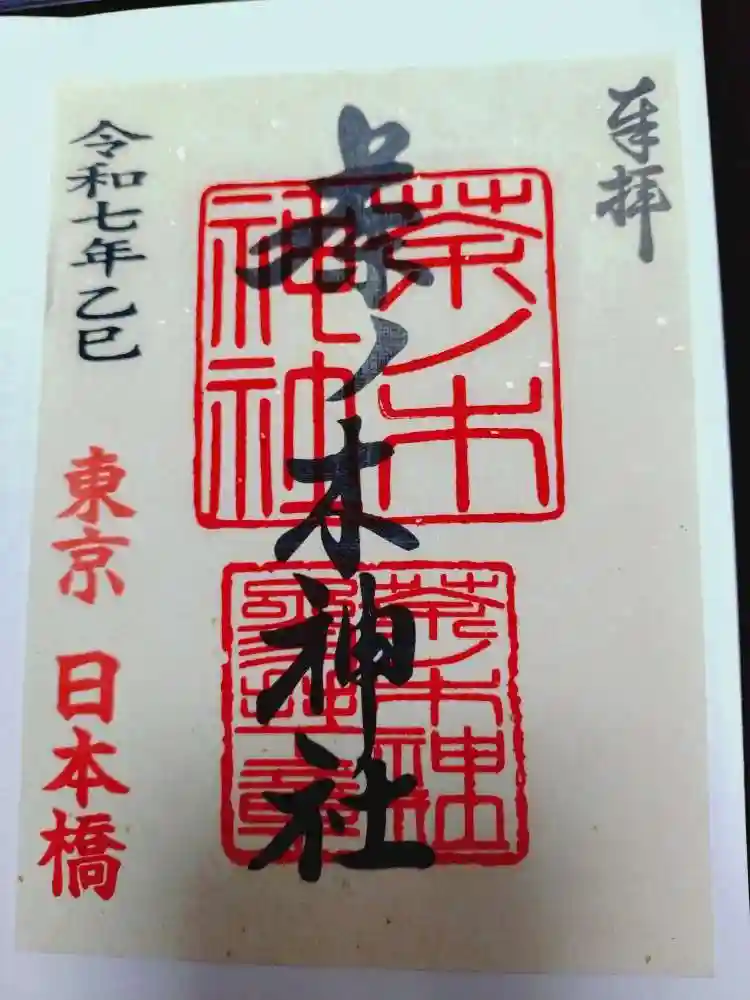 奉拝
茶ノ木神社
茶ノ木
神社
茶ノ木神
令和七年乙巳
東京 日本橋